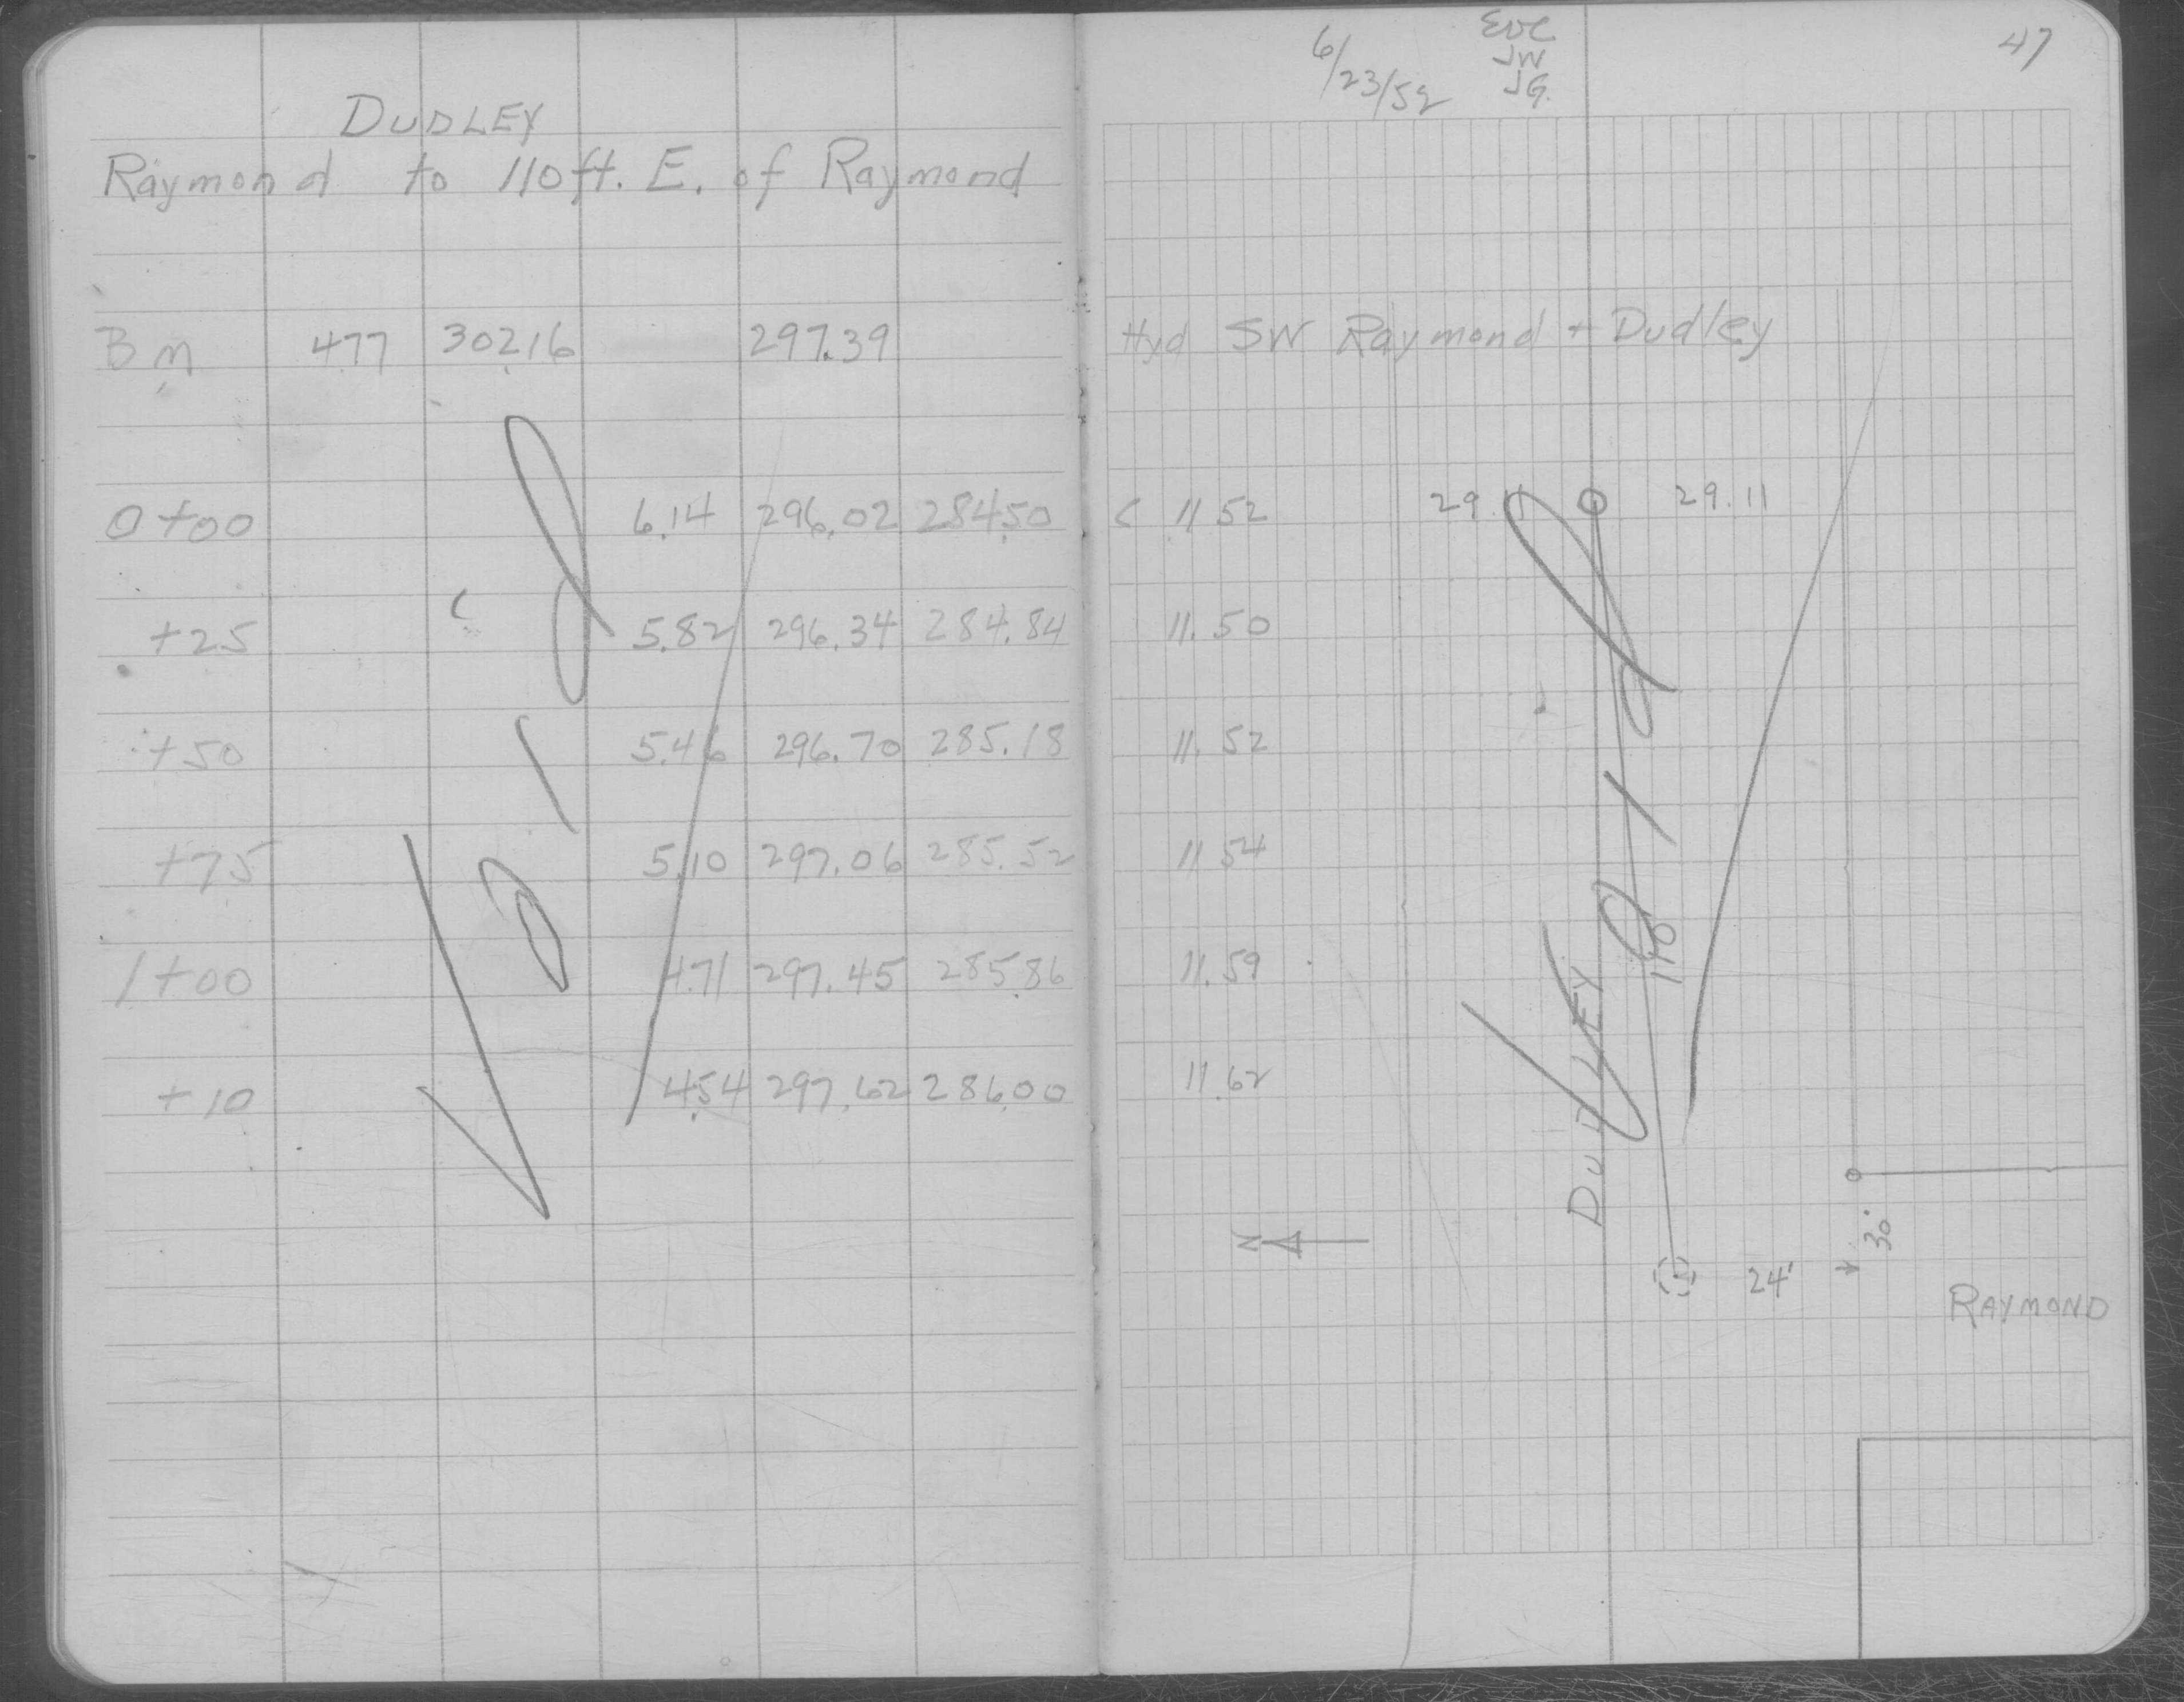 DUDLEY
Raymond to 110 ft. E. of Raymond
BM 4.77 302.16 297.39
0+00 6.14 296.02 284.50
+25 5.82 296.34 284.84
+50 5.46 296.70 285.18
+75 5.10 297.06 285.52
1+00 4.71 297.45 285.86
+10 4.54 297.62 286.00
Void
6/23/52
EVC
JW
JG.
47
Hyd SW Raymond + Dudley
C 11.52 29.11 29.11
11.50
11.52
11.54
11.59
11.62
Void
110
DUDLEY
N
24'
30'
RAYMOND